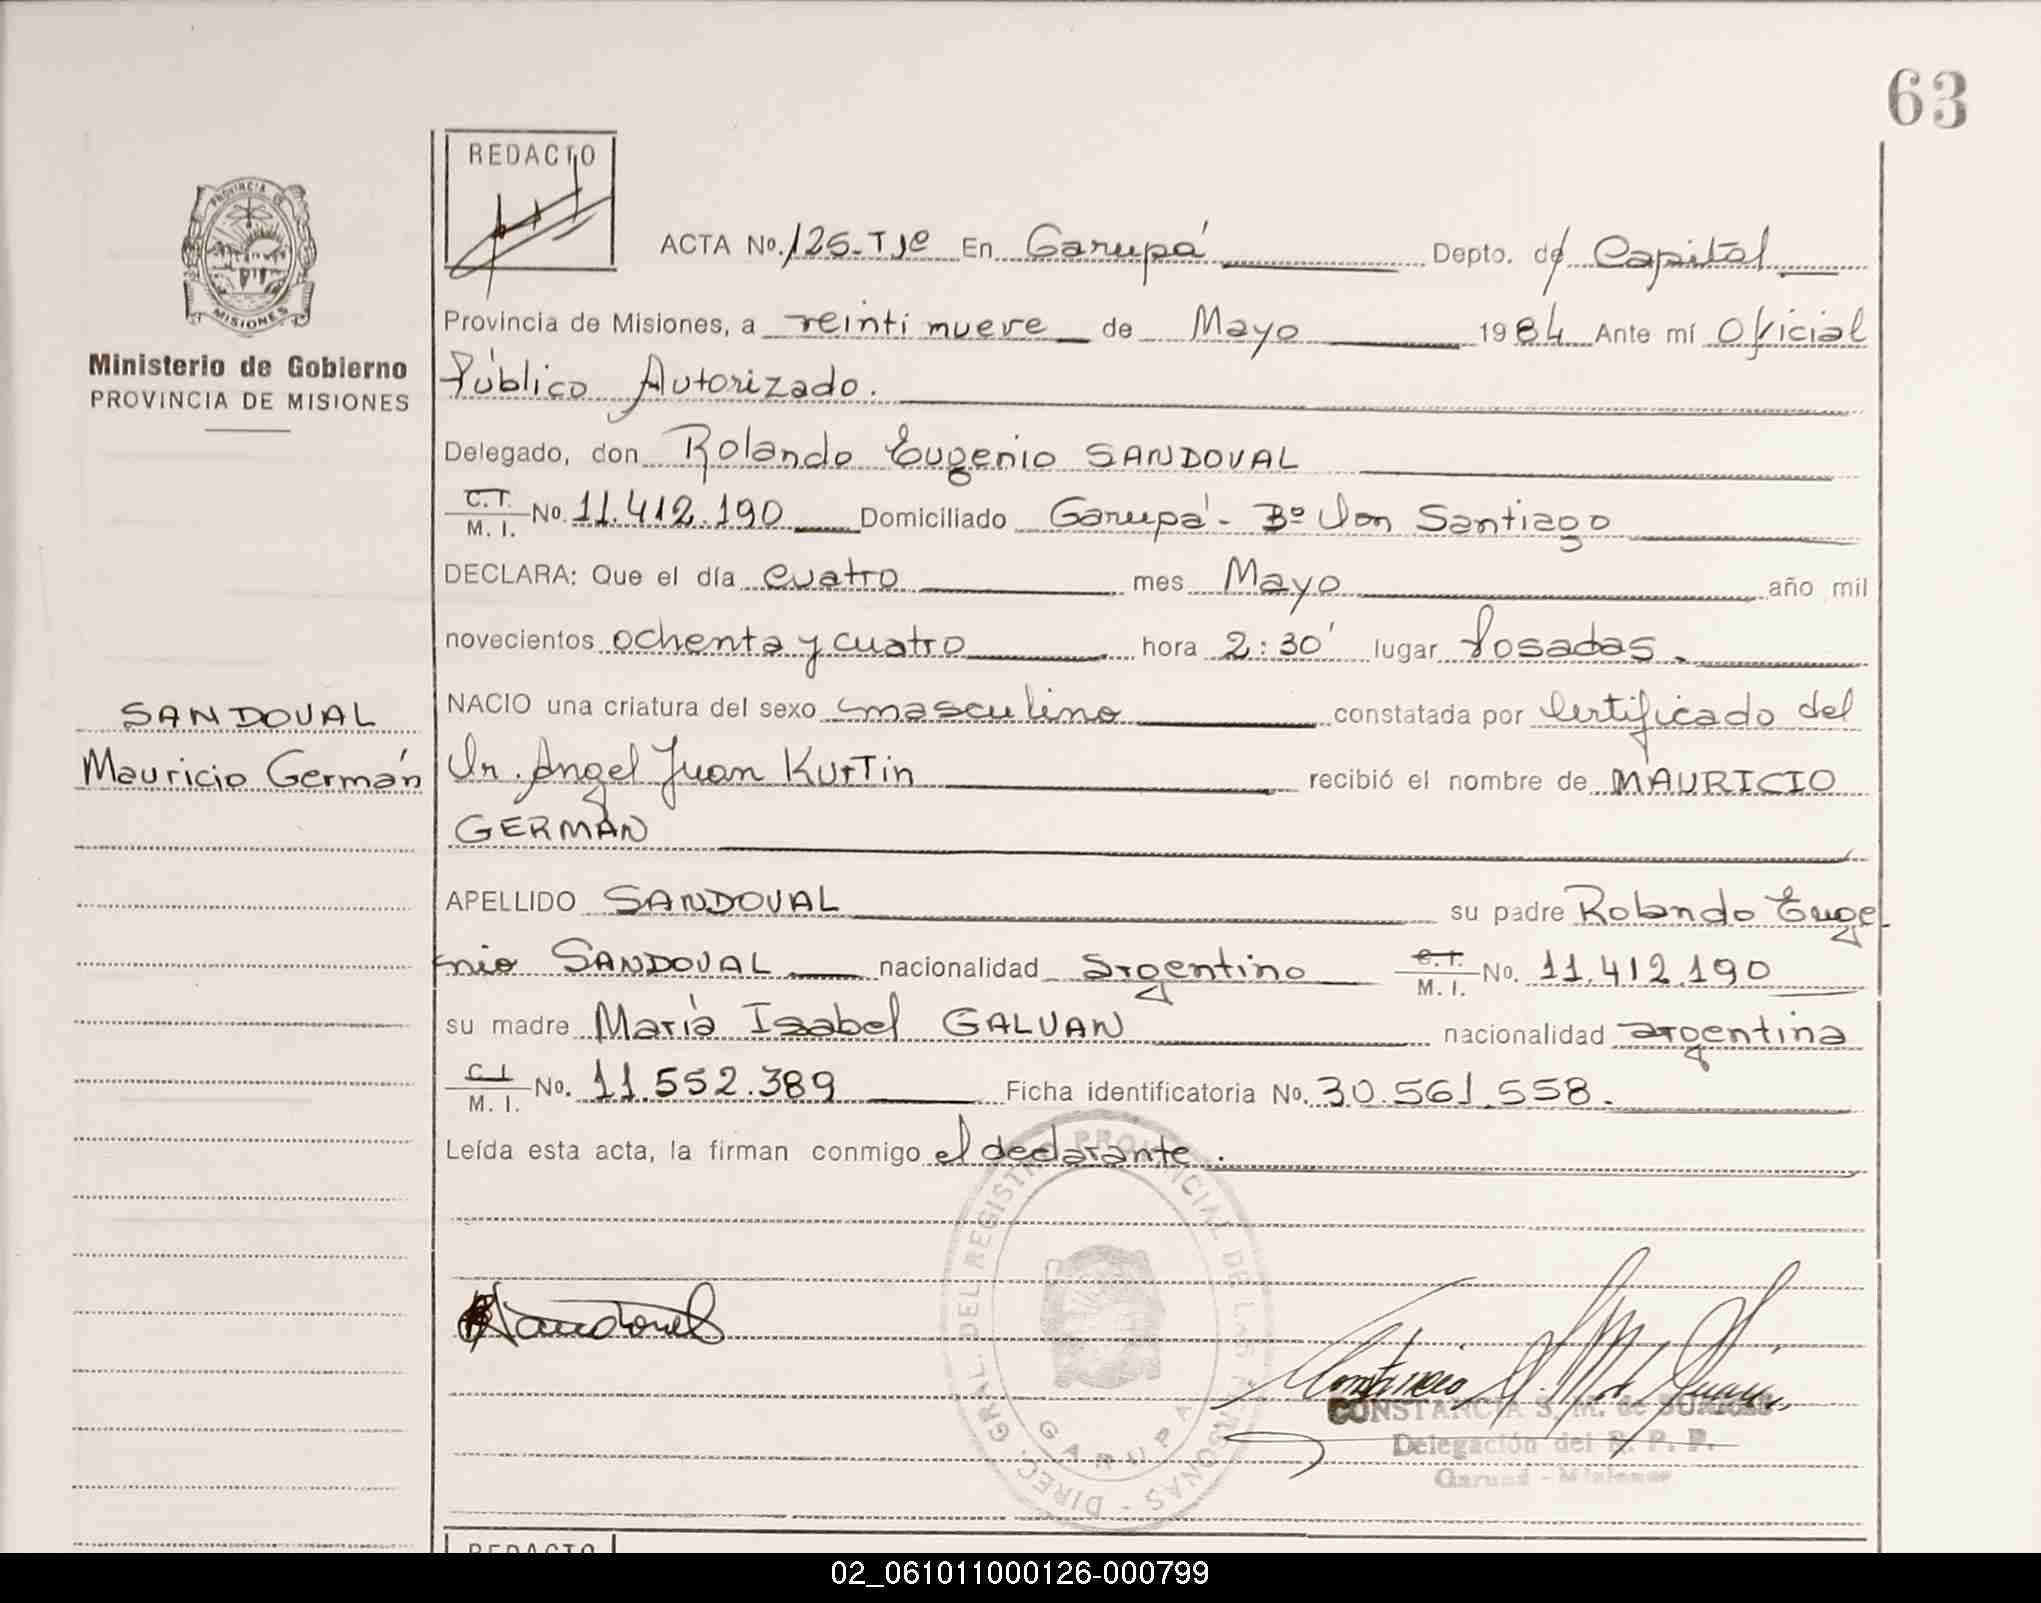 63
REDACTO
PROVINCIA DE
MISIONES
Ministerio de Gobierno
PROVINCIA DE MISIONES
ACTA No. 125-T1º En Garupá Depto. de Capital
Provincia de Misiones, a veintinueve de Mayo 1984 Ante mí Oficial
Público Autorizado.
Delegado, don Rolando Eugenio SANDOVAL
C.I.
M. I. No. 11.412.190 Domiciliado Garupá - Bº Don Santiago
DECLARA: Que el día cuatro mes Mayo año mil
novecientos ochenta y cuatro hora 2:30' lugar Posadas.
SANDOVAL
Mauricio Germán
NACIO una criatura del sexo masculino constatada por Certificado del
Dr. Angel Juan Kurtin recibió el nombre de MAURICIO
GERMÁN
APELLIDO SANDOVAL su padre Rolando Euge
nio SANDOVAL nacionalidad argentino C.I.
M. I. No. 11.412.190
su madre María Isabel GALVAN nacionalidad argentina
C.I.
M. I. No. 11.552.389 Ficha identificatoria No. 30.561.558.
Leída esta acta, la firman conmigo el declarante.
DIREC. GRAL. DEL REGISTRO PROVINCIAL DE LAS PERSONAS -
GARUPA
Sandoval
CONSTANCIA S. M. de
Delegación del R. P. P.
Garupá - Misiones
REDACTO
02_061011000126-000799